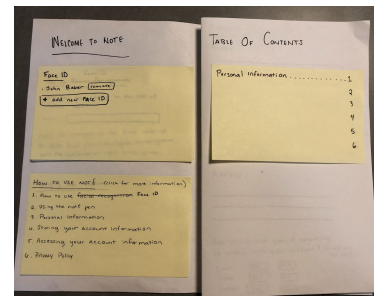 WELCOME TO NOTE
Face ID
. John Baber remove
+ add new FACE ID
HOW TO USE NOTE (click for more information)
1. How to use facial recognition Face ID
2. Using the note pen
3. Personal information
4. Storing your account information
5. Accessing your account information
6. Privacy Policy
TABLE OF CONTENTS
Personal information ............. 1
2
3
4
5
6